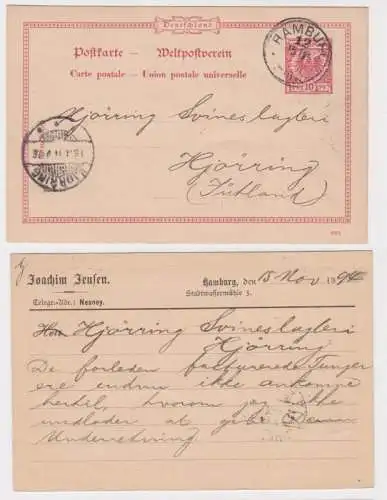 Deutschland
Postkarte — Weltpostverein
Carte postale — Union postale universelle
HAMBURG
10
Hjörring Svineslagteri
HJØRRING
Hjörring
(Jütland)
Joachim Jensen.
Hamburg, den 15 Nov 1894
Stadtwassermühle 3.
Telegr.-Adr.: Nesnoy.
Hjörring Svineslagteri
Hjörring
De forleden fakturerede Tunger
ere endnu ikke ankomne
hertil, hvorom jeg ikke
undlader at give Dem
Underretning